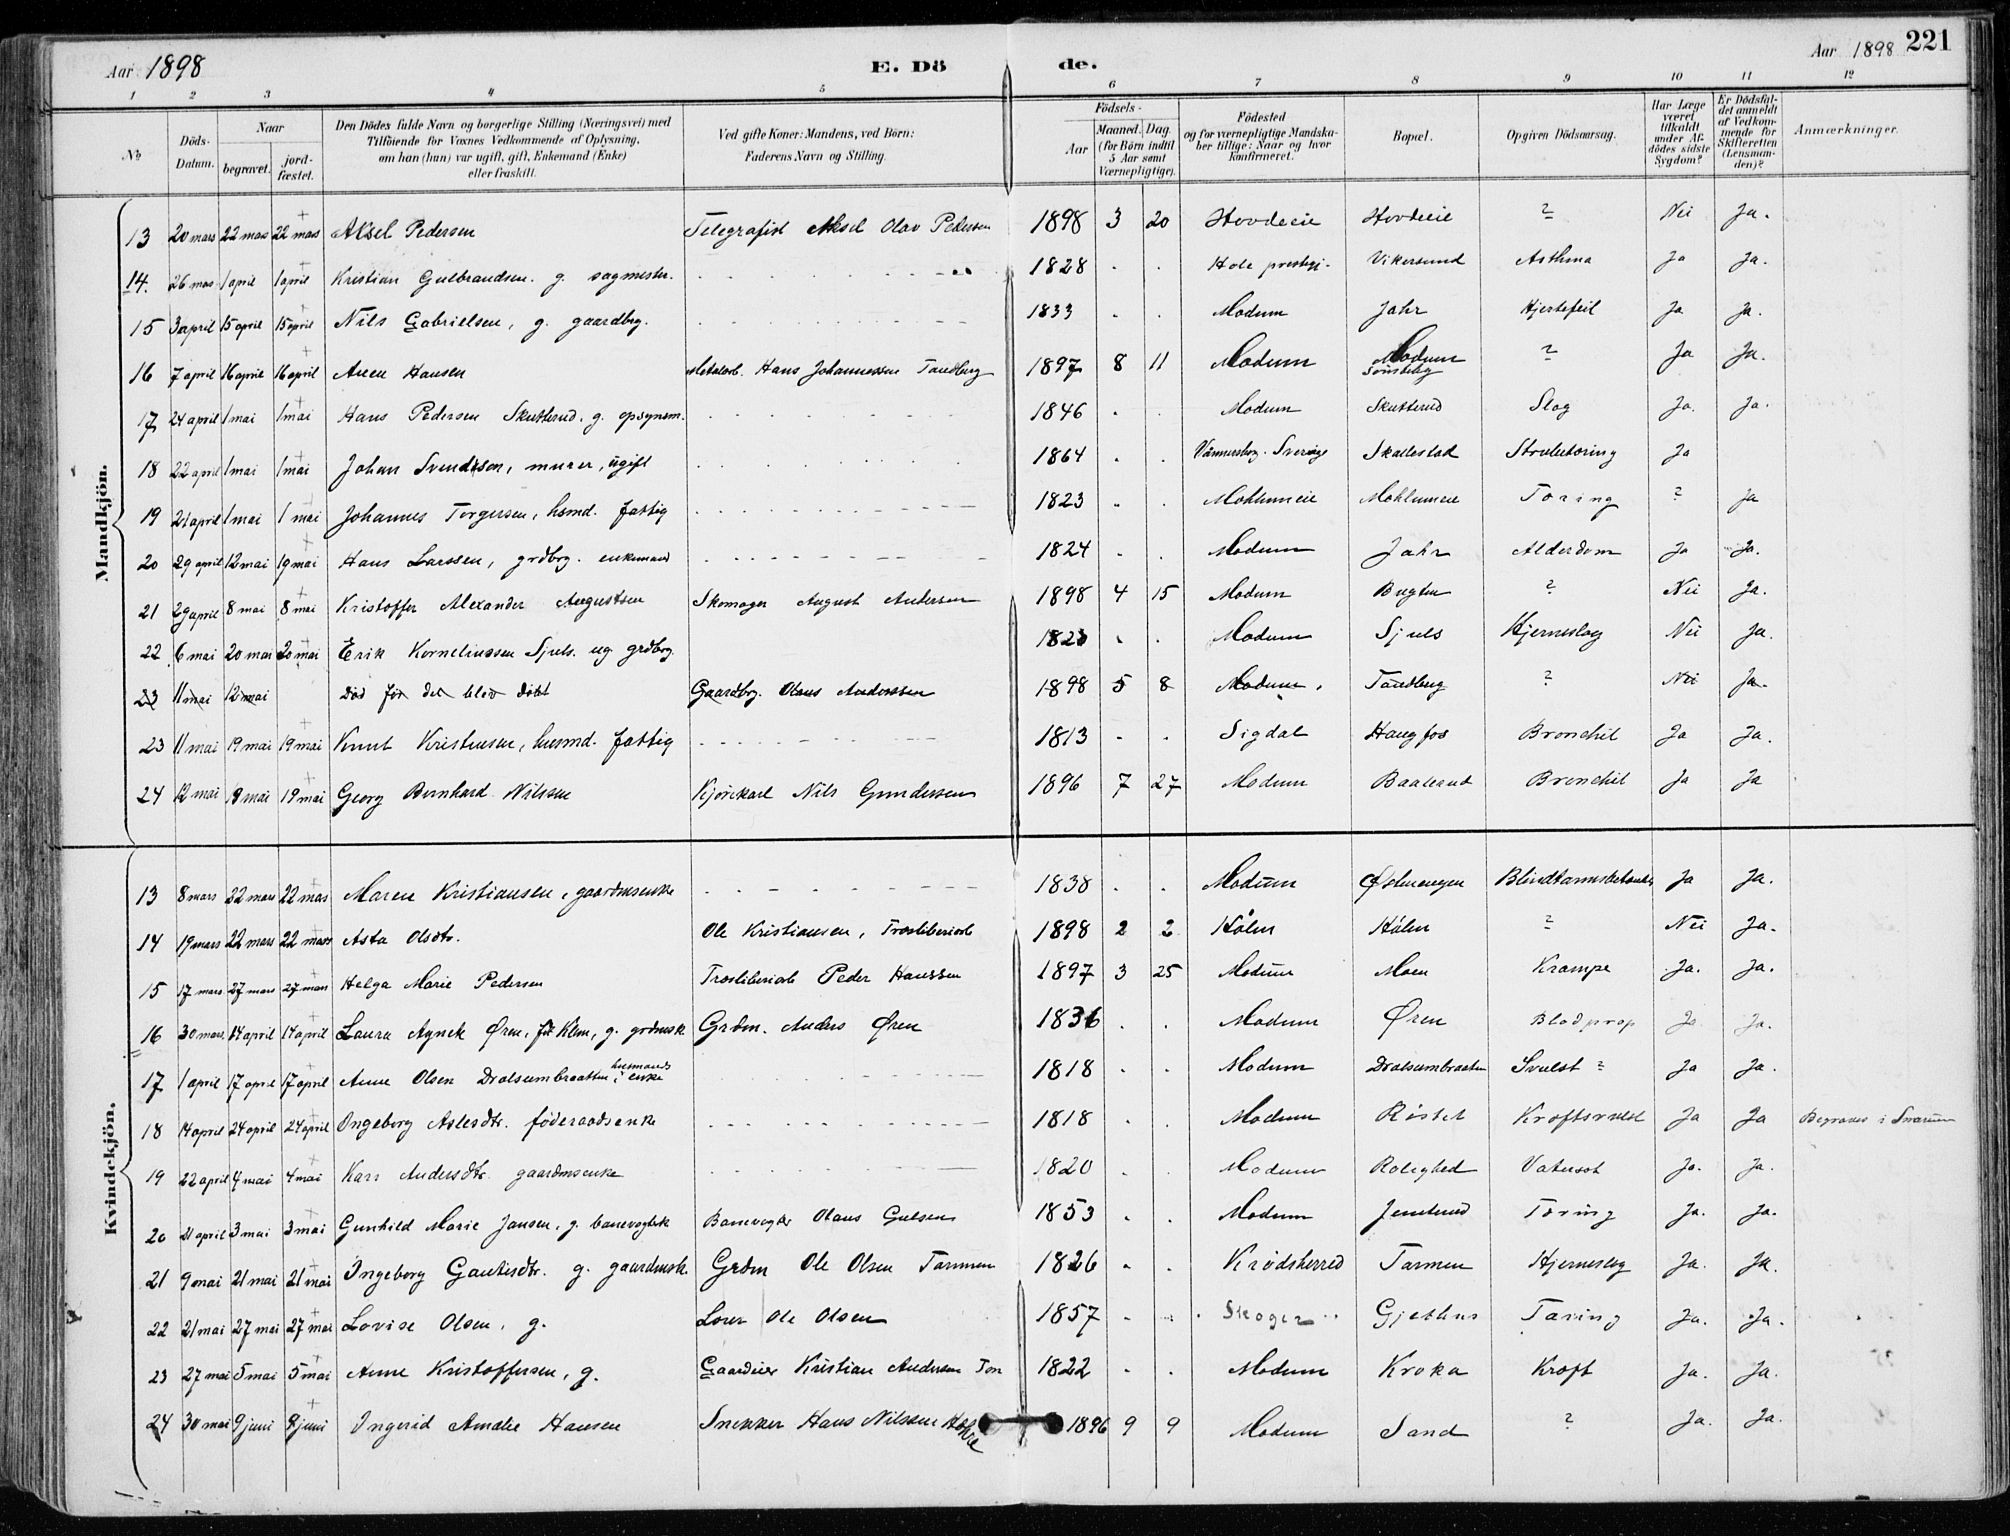 Aar 1898 E. Dö de. Aar 1898 221
1 2 3 4 5 6 7 8 9 10 11 12
№ Döds-Datum. Naar begravet. jord-fæstet. Den Dödes fulde Navn og borgerlige Stilling (Næringsvei) med Tilföiende for Voxnes Vedkommende af Oplysning, om han (hun) var ugift, gift, Enkemand (Enke) eller fraskilt. Ved gifte Koner: Mandens, ved Börn: Faderens Navn og Stilling. Födsels- Aar Maaned. Dag. (for Börn indtil 5 Aar samt Værnepligtige). Födested og for værnepligtige Mandskaber tillige: Naar og hvor konfirmeret. Bopæl. Opgiven Dödsaarsag. Har Læge været tilkaldt under Afdödes sidste Sygdom? Er Dödsfaldet anmeldt af Vedkommende for Skifteretten (Lensmanden)? Anmærkninger.
Mandkjön.
13 20 mars 22 mars 22 mars Aksel Pedersen Telegrafist Aksel Olav Pedersen 1898 3 20 Hovdeeie Hovdeeie ? Nei Ja.
14. 26 mars 1 april 1 april Kristian Gulbrandsen. g. sagmester. 1828 Hole prestegj. Vikersund Asthma Ja Ja.
15 3 april 15 april 15 april Nils Gabrielsen, g. gaardbrg. 1833 Modum Jahr Hjertefeil Ja Ja.
16 7 april 16 april 16 april Anen Hansen Metalarb. Hans Johannessen Tandberg 1897 8 11 Modum Modum ? Ja Ja.
17 24 april 1 mai 1 mai Hans Pedersen Skutterud. g. opsynsm. 1846 Modum Skutterud Slag Ja. Ja.
18 22 april 1 mai 1 mai Johan Svendsen, murer, ugift 1864 Vännersborg. Sverige Skallestad Strubetæring Ja
19 21 april 1 mai 1 mai Johannes Torgersen, hsmd. fattig 1823 Mohlumeie Mohlumeie Tæring ? Ja
20 29 april 12 mai 19 mai Hans Larssen, grdbrg. enkemand 1824 Modum Jahr Alderdom Ja Ja.
21 29 april 8 mai 8 mai Kristoffer Alexander Augustsen Skomager August Andersen 1898 4 15 Modum Bugten ? Nei Ja.
22 6 mai 20 mai 20 mai Erik Korneliussen Sjuls. ug grdbrg. 1823 Modum Sjuls Hjerneslag Nei Ja.
23 11 mai 12 mai Død før det blev døbt Gaardbrg. Olaus Anderssen 1898 5 8 Modum. Tandberg ? Nei Ja.
23 11 mai 19 mai 19 mai Knut Kristensen, husmd. fattig 1813 Sigdal Haugfos Bronchit Ja Ja.
24 12 mai 19 mai 19 mai Georg Bernhard Nilssen Kjørekarl Nils Gundersen 1896 7 27 Modum Baalerud Bronchit Ja Ja
Kvindekjön.
13 8 mars 22 mars 22 mars Maren Kristiansen, gaardmsenke 1838 Modum Østmoengen Ja Ja.
14 19 mars 22 mars 22 mars Asta Olsdtr. Ole Kristiansen, Træsliberiarb 1898 2 2 Hålen Hålen ? Nei Ja.
15 17 mars 27 mars 27 mars Helga Marie Pedersen Træsliberiarb Peder Hanssen 1897 3 25 Modum Moen Krampe Ja. Ja.
16 30 mars 14 april 14 april Laura Agnete Øren, g. grdmsk Grdm. Anders Øren 1836 Modum Øren Blodprop Ja Ja.
17 1 april 17 april 17 april Anne Olsen Dralsumbraatten husmands enke 1818 Modum Dralsumbraaten Svulst ? Ja Ja.
18 14 april 24 april 24 april Ingeborg Aslesdtr. føderaadsenke 1818 Modum Røstet Kræftsvulst Ja Ja Begraves i Snarum
19 22 april 4 mai 4 mai Kari Andersdtr. gaardmsenke 1820 Modum Rolighed Vatersot Ja. Ja.
20 21 april 3 mai 3 mai Gunhild Marie Jansen, g. banevogterk Banevogter Olaus Gulsen 1853 Modum Jensterud Tæring Ja. Ja.
21 9 mai 21 mai 21 mai Ingeborg Gautesdtr. g. gaardmsk. Grdm Ole Olsen Tarmen 1826 Krødsherred Tarmen Hjerneslag Ja. Ja.
22 21 mai 27 mai 27 mai Lovise Olsen, g. Ole Olsen 1857 Skoger Gjethus Tæring Ja. Ja.
23 27 mai 5 mai 5 mai Anne Kristoffersen, g. Gaardeier Kristian Andersen 1822 Modum Kroka Kræft Ja. Ja.
24 30 mai 9 juni 9 juni Ingerid Amalie Hansen Snekker Hans Nilssen 1896 9 9 Modum Sand ? Ja. Ja.